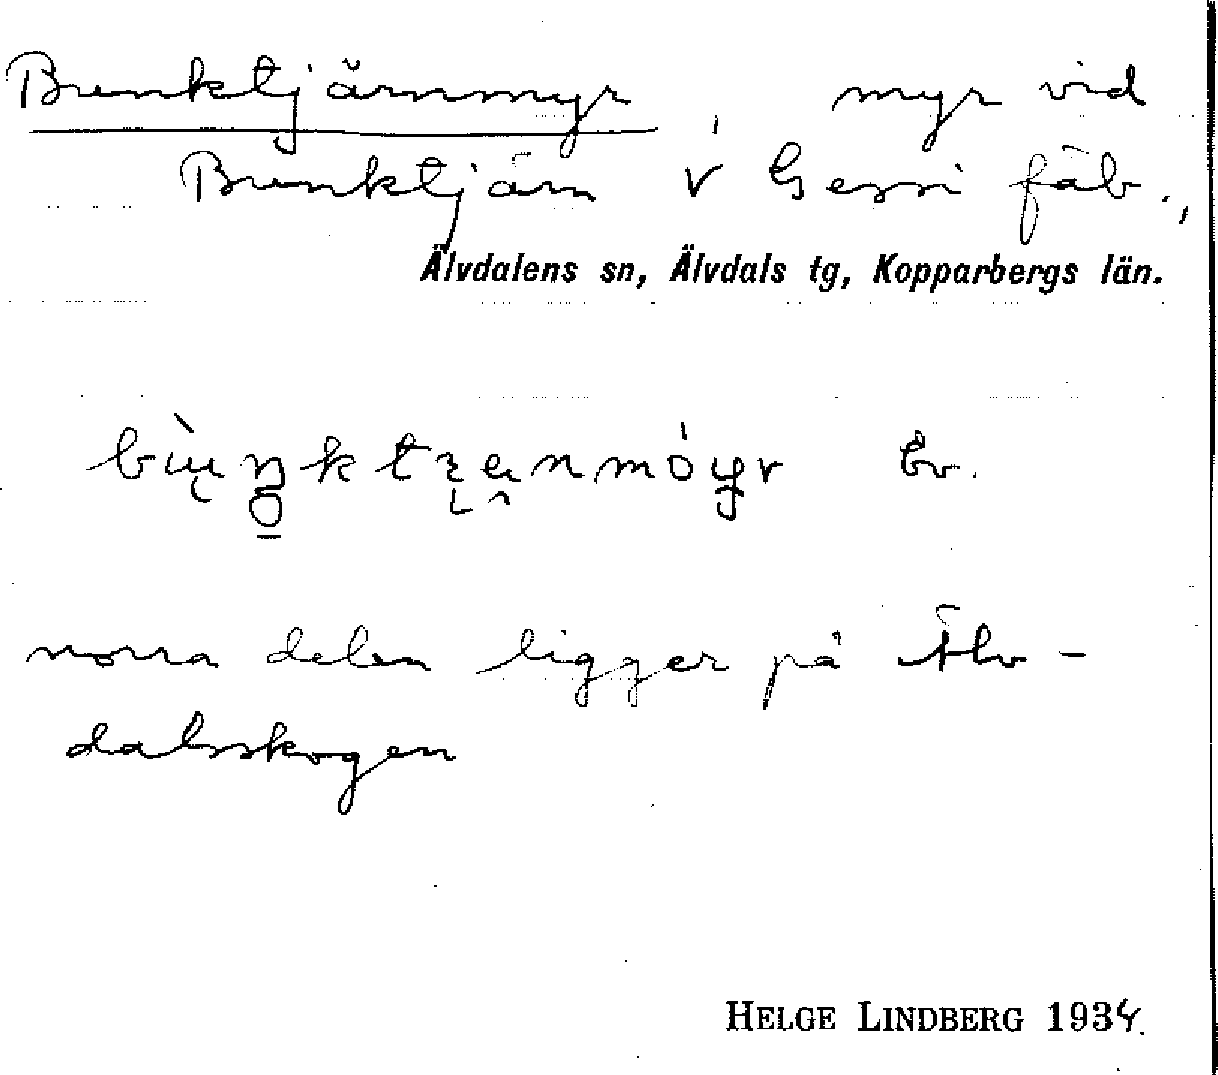 Bunktjärnmyr myr vid
Bunktjärn v Gessi fäb.,
Älvdalens sn, Älvdals tg, Kopparbergs län.
Ev.
norra delen ligger på Älv-
dalsskogen
HELGE LINDBERG 1934.